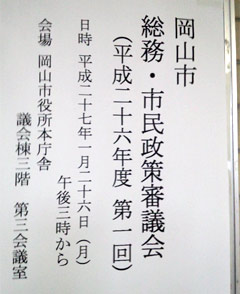 岡山市
総務・市民政策審議会
(平成二十六年度 第一回)
日時 平成二十七年一月二十六日(月)
午後三時から
会場 岡山市役所本庁舎
議会棟三階 第三会議室